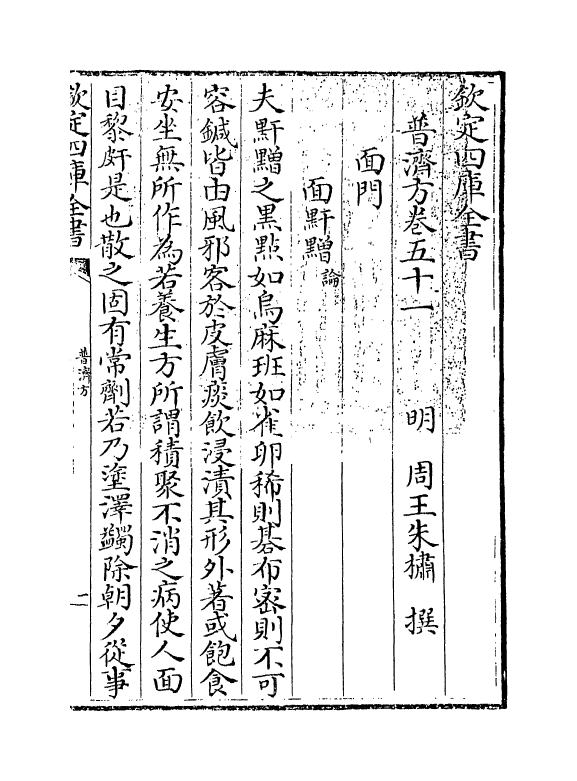 欽定四庫全書
普濟方卷五十一　明　周王朱橚　撰
面門
面䵟䵳論
夫䵟䵳之黒點如烏麻班如雀卵稀則碁布密則不可
容鍼皆由風邪客於皮膚痰飲浸漬其形外著或飽食
安坐無所作為若養生方所謂積聚不消之病使人面
目黎皯是也散之固有常劑若乃塗澤蠲除朝夕從事
欽定四庫全書
普濟方
二